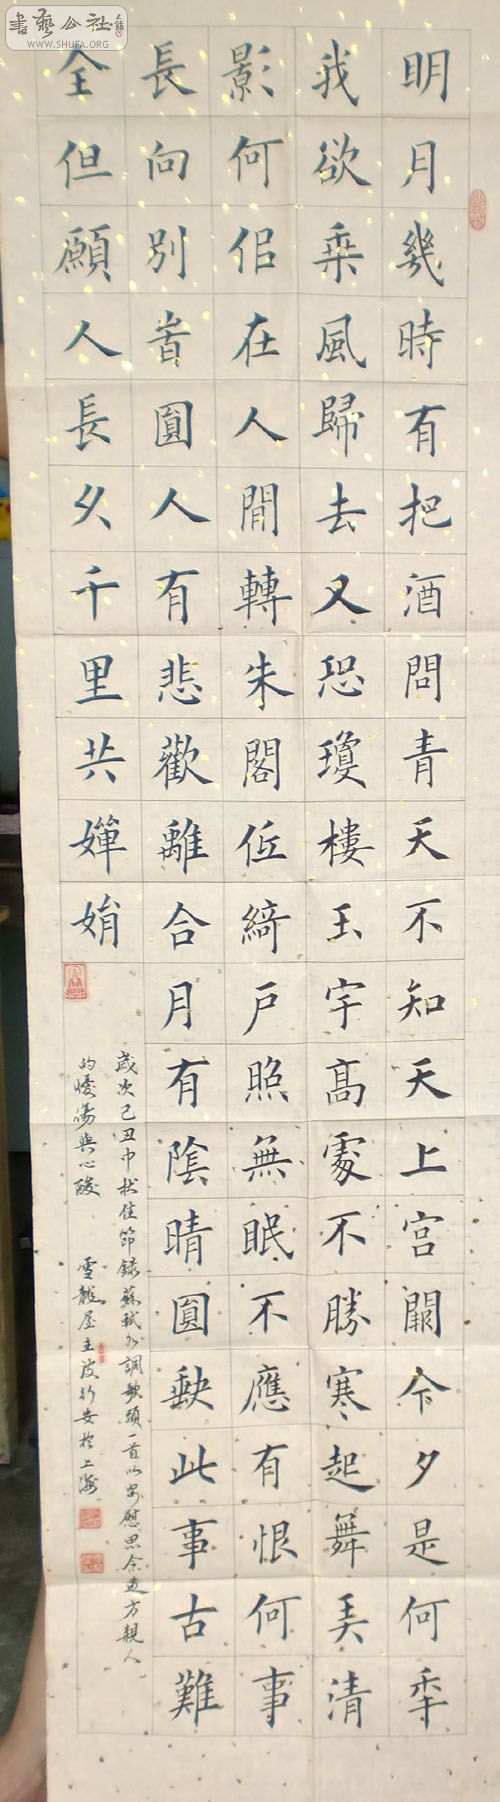 書藝公社
WWW.SHUFA.ORG
明月幾時有把酒問青天不知天上宮闕今夕是何秊
我欲乘風歸去又恐瓊樓玉宇高處不勝寒起舞弄清
影何佀在人間轉朱閣低綺戶照無眠不應有恨何事
長向別旹圓人有悲歡離合月有陰晴圓缺此事古難
全但願人長久千里共嬋娟
歲次己丑中秋佳節錄蘇軾水調歌頭一首以安慰思念遠方親人
的憂傷與心酸 雪龍屋主 於上海